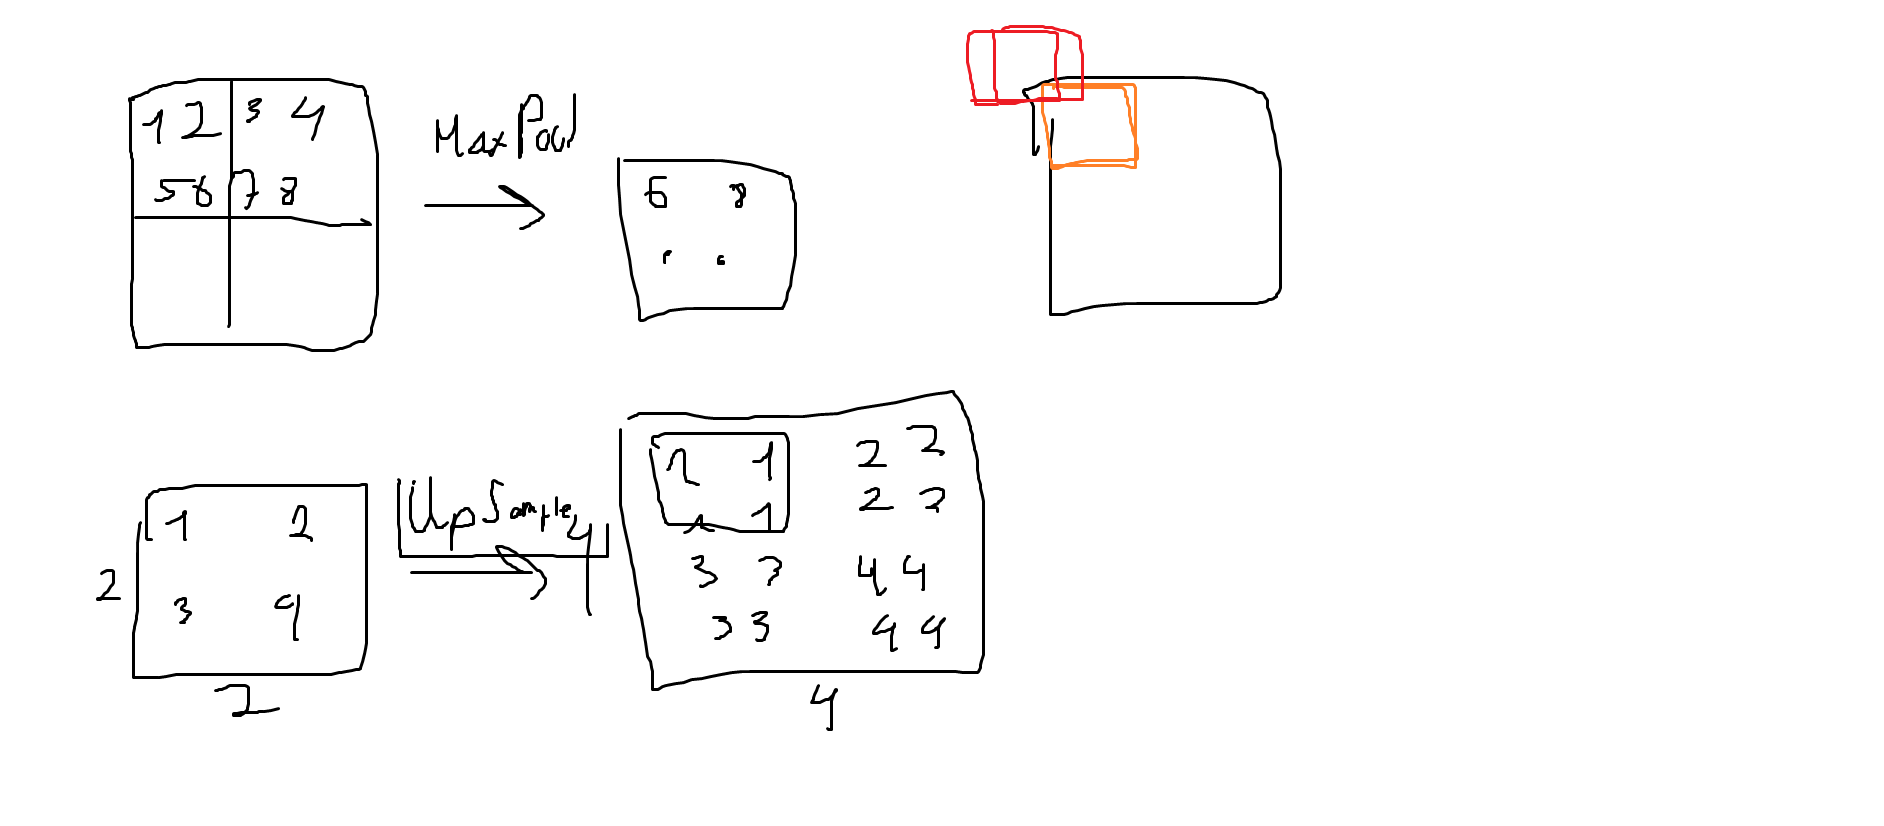 1 2 3 4
5 6 7 8
MaxPool
6 8
1 2
3 4
2
2
UpSample
4
1 1 2 2
1 1 2 2
3 3 4 4
3 3 4 4
4